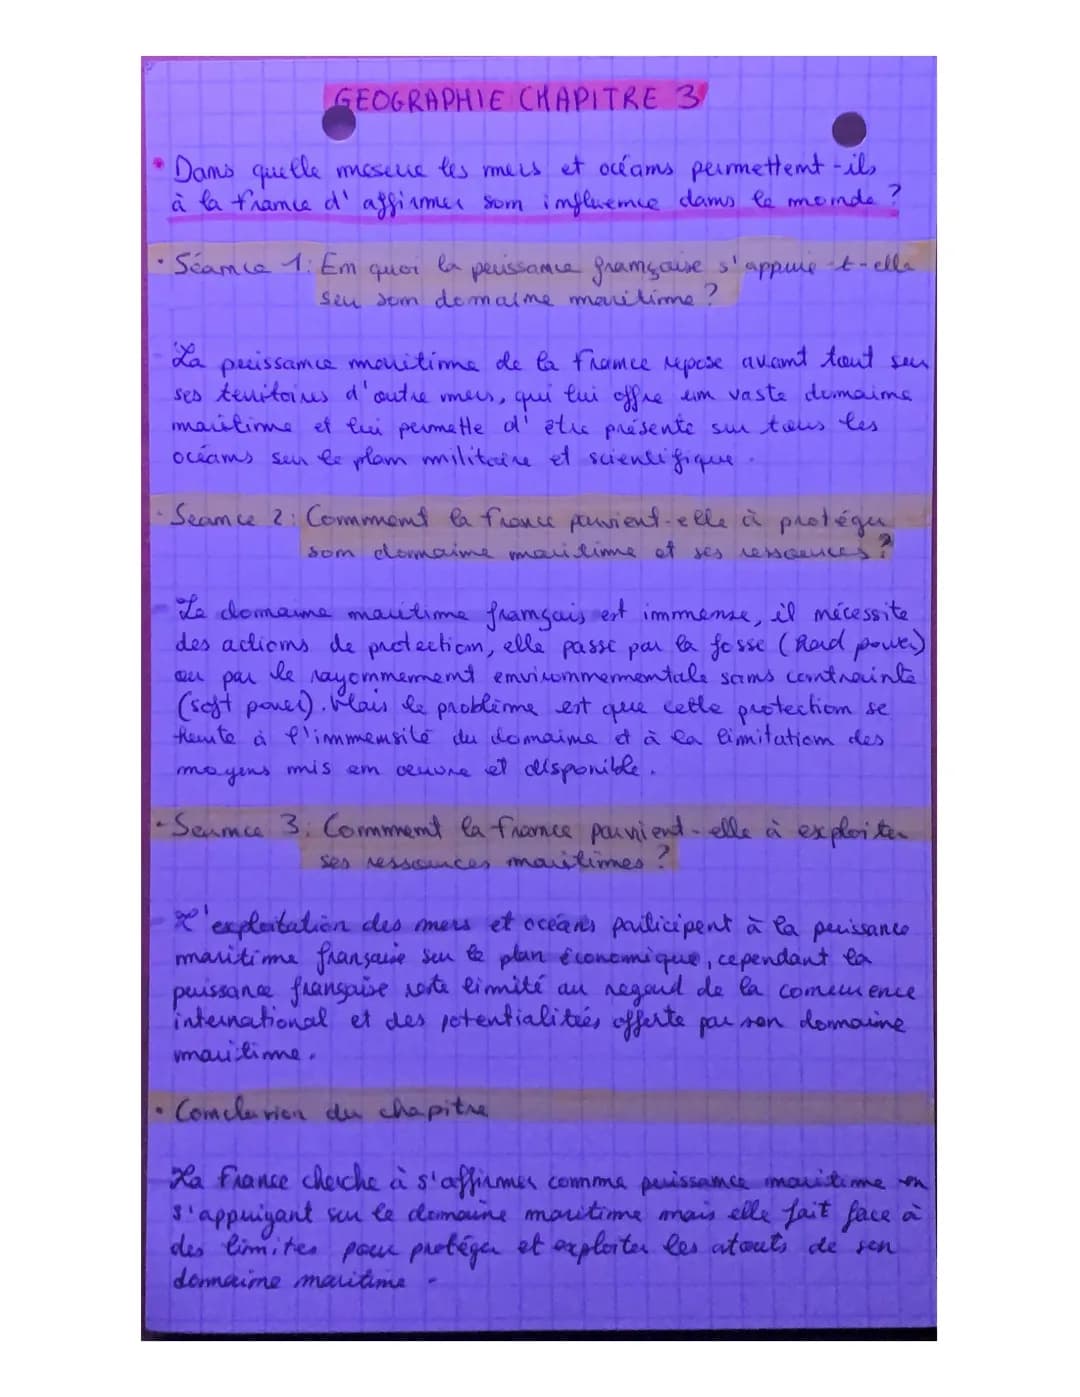 GEOGRAPHIE CHAPITRE 3
• Dans quelle mesure les mers et océans permettent-ils
à la France d'affirmer son influence dans le monde ?
• Séance 1: En quoi la puissance française s'appuie-t-elle
sur son domaine maritime ?
La puissance maritime de la France repose avant tout sur
ses territoires d'outre mers, qui lui offre um vaste domaine
maritime et lui permette d'être présente sur tous les
océans sur le plan militaire et scientifique.
• Seance 2: Comment la France parvient-elle à protéger
son domaine maritime et ses ressources ?
Le domaine maritime français est immense, il nécessite
des actions de protection, elle passe par la fosse (Hard power)
ou par le rayonnement environnementale sans contrainte
(soft power). Mais le problème est que cette protection se
heurte à l'immensité du domaine et à la limitation des
moyens mis en œuvre et disponible.
• Seance 3: Comment la France parvient-elle à exploiter
ses ressources maritimes ?
L'exploitation des mers et océans participent à la puissance
maritime française sur le plan économique, cependant la
puissance française reste limité au regard de la concurrence
international et des potentialités offerte par son domaine
maritime.
• Conclusion du chapitre
La France cherche à s'affirmer comme puissance maritime en
s'appuiyant sur le domaine maritime mais elle fait face à
des limites pour protéger et exploiter les atouts de son
domaine maritime.